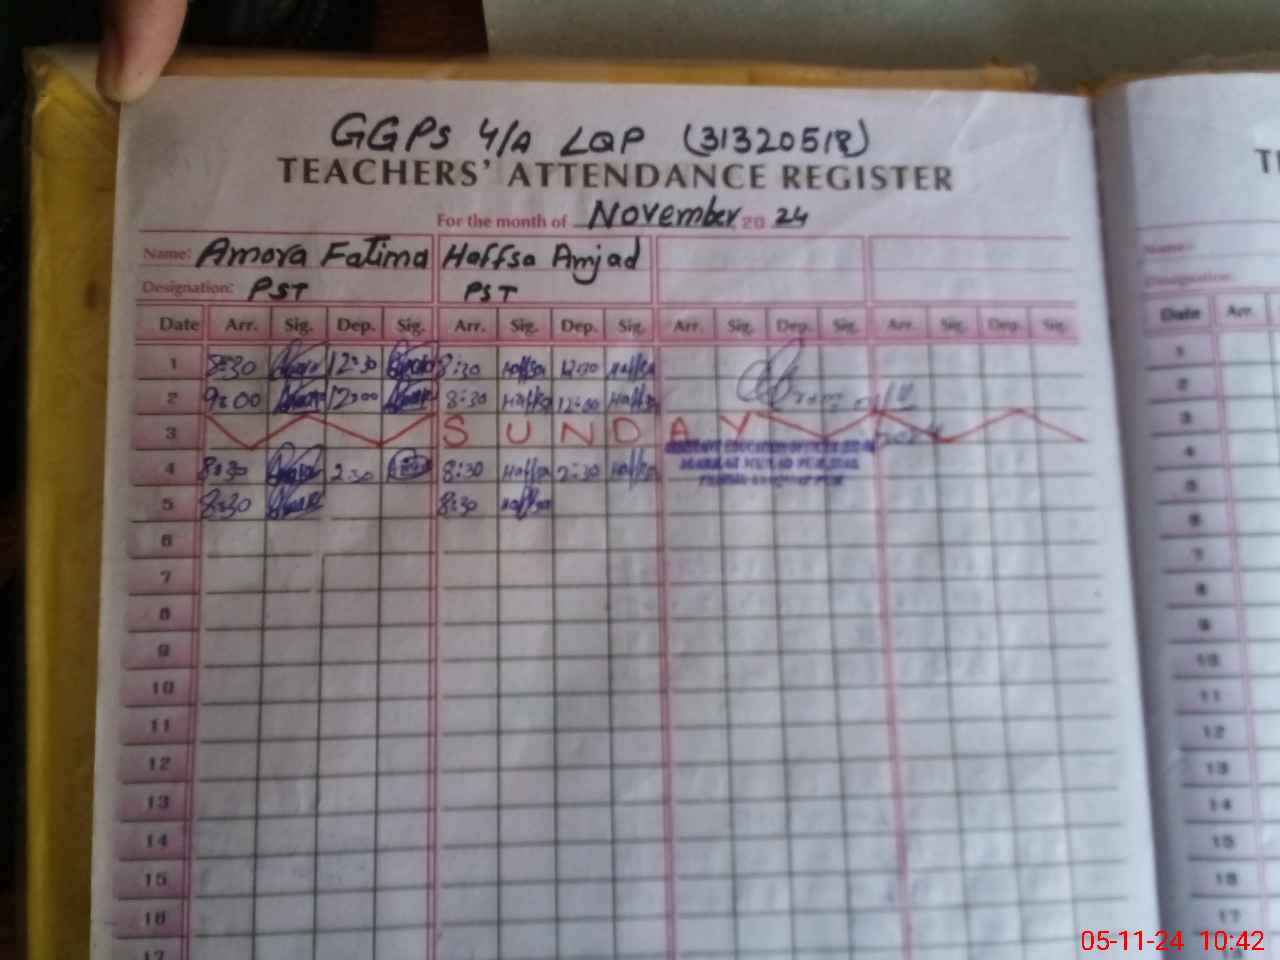 GGPS 4/A LQP (31320518)
TEACHERS' ATTENDANCE REGISTER
For the month of November 20 24
Name: Amora Fatima Haffsa Amjad
Designation: PST PST
Date Arr. Sig. Dep. Sig. Arr. Sig. Dep. Sig. Arr. Sig. Dep. Sig. Arr. Sig. Dep. Sig.
1 8:30 12:30 8:30 Haffsa 12:30 Haffsa
2 9:00 12:00 8:30 Haffsa 12:00 Haffsa
3 SUNDAY
4 8:30 2:30 8:30 Haffsa 2:30 Haffsa
5 8:30 8:30 Haffsa
6
7
8
9
10
11
12
13
14
15
16
17
Name:
Designation:
Date Arr.
1
2
3
4
5
6
7
8
9
10
11
12
13
14
15
16
17
05-11-24 10:42